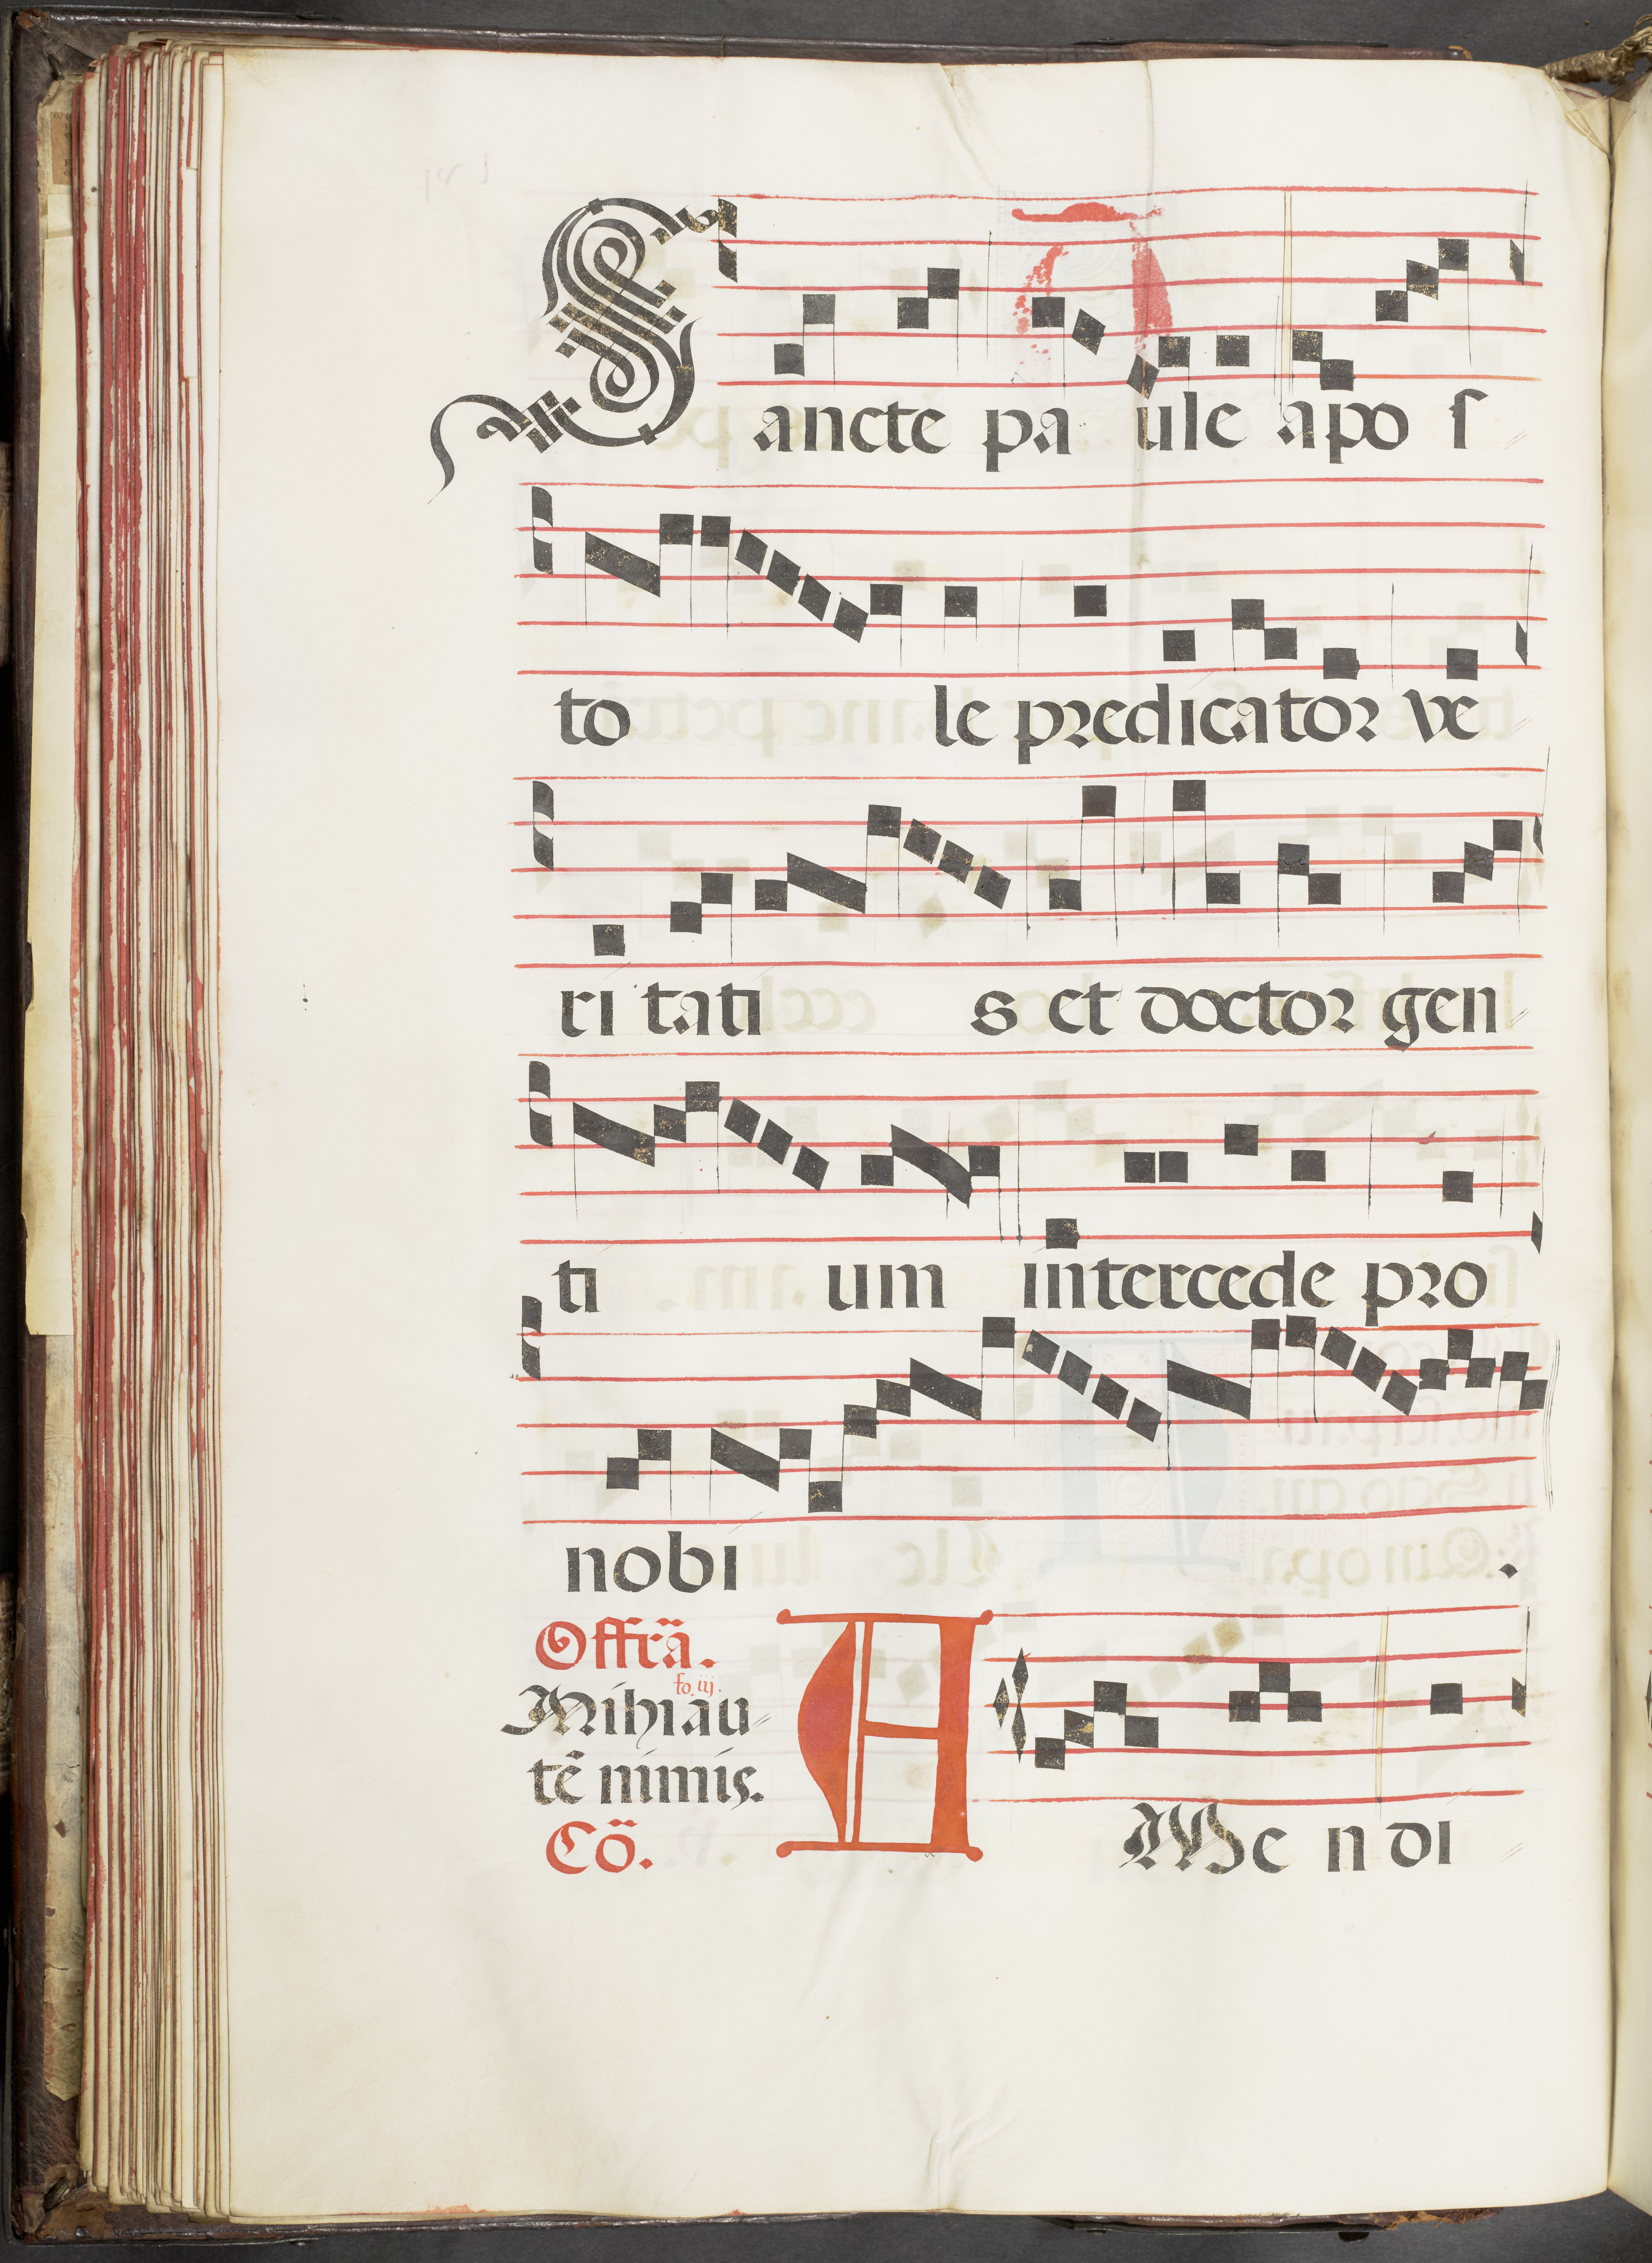 Sancte pa ule apo ſ
to le predicator ve
ri tati s et doctor gen
ti um intercede pro
nobi .
Offrā.
fo iij.
Mihi au
tē nimis.
Cō.
AMe n di